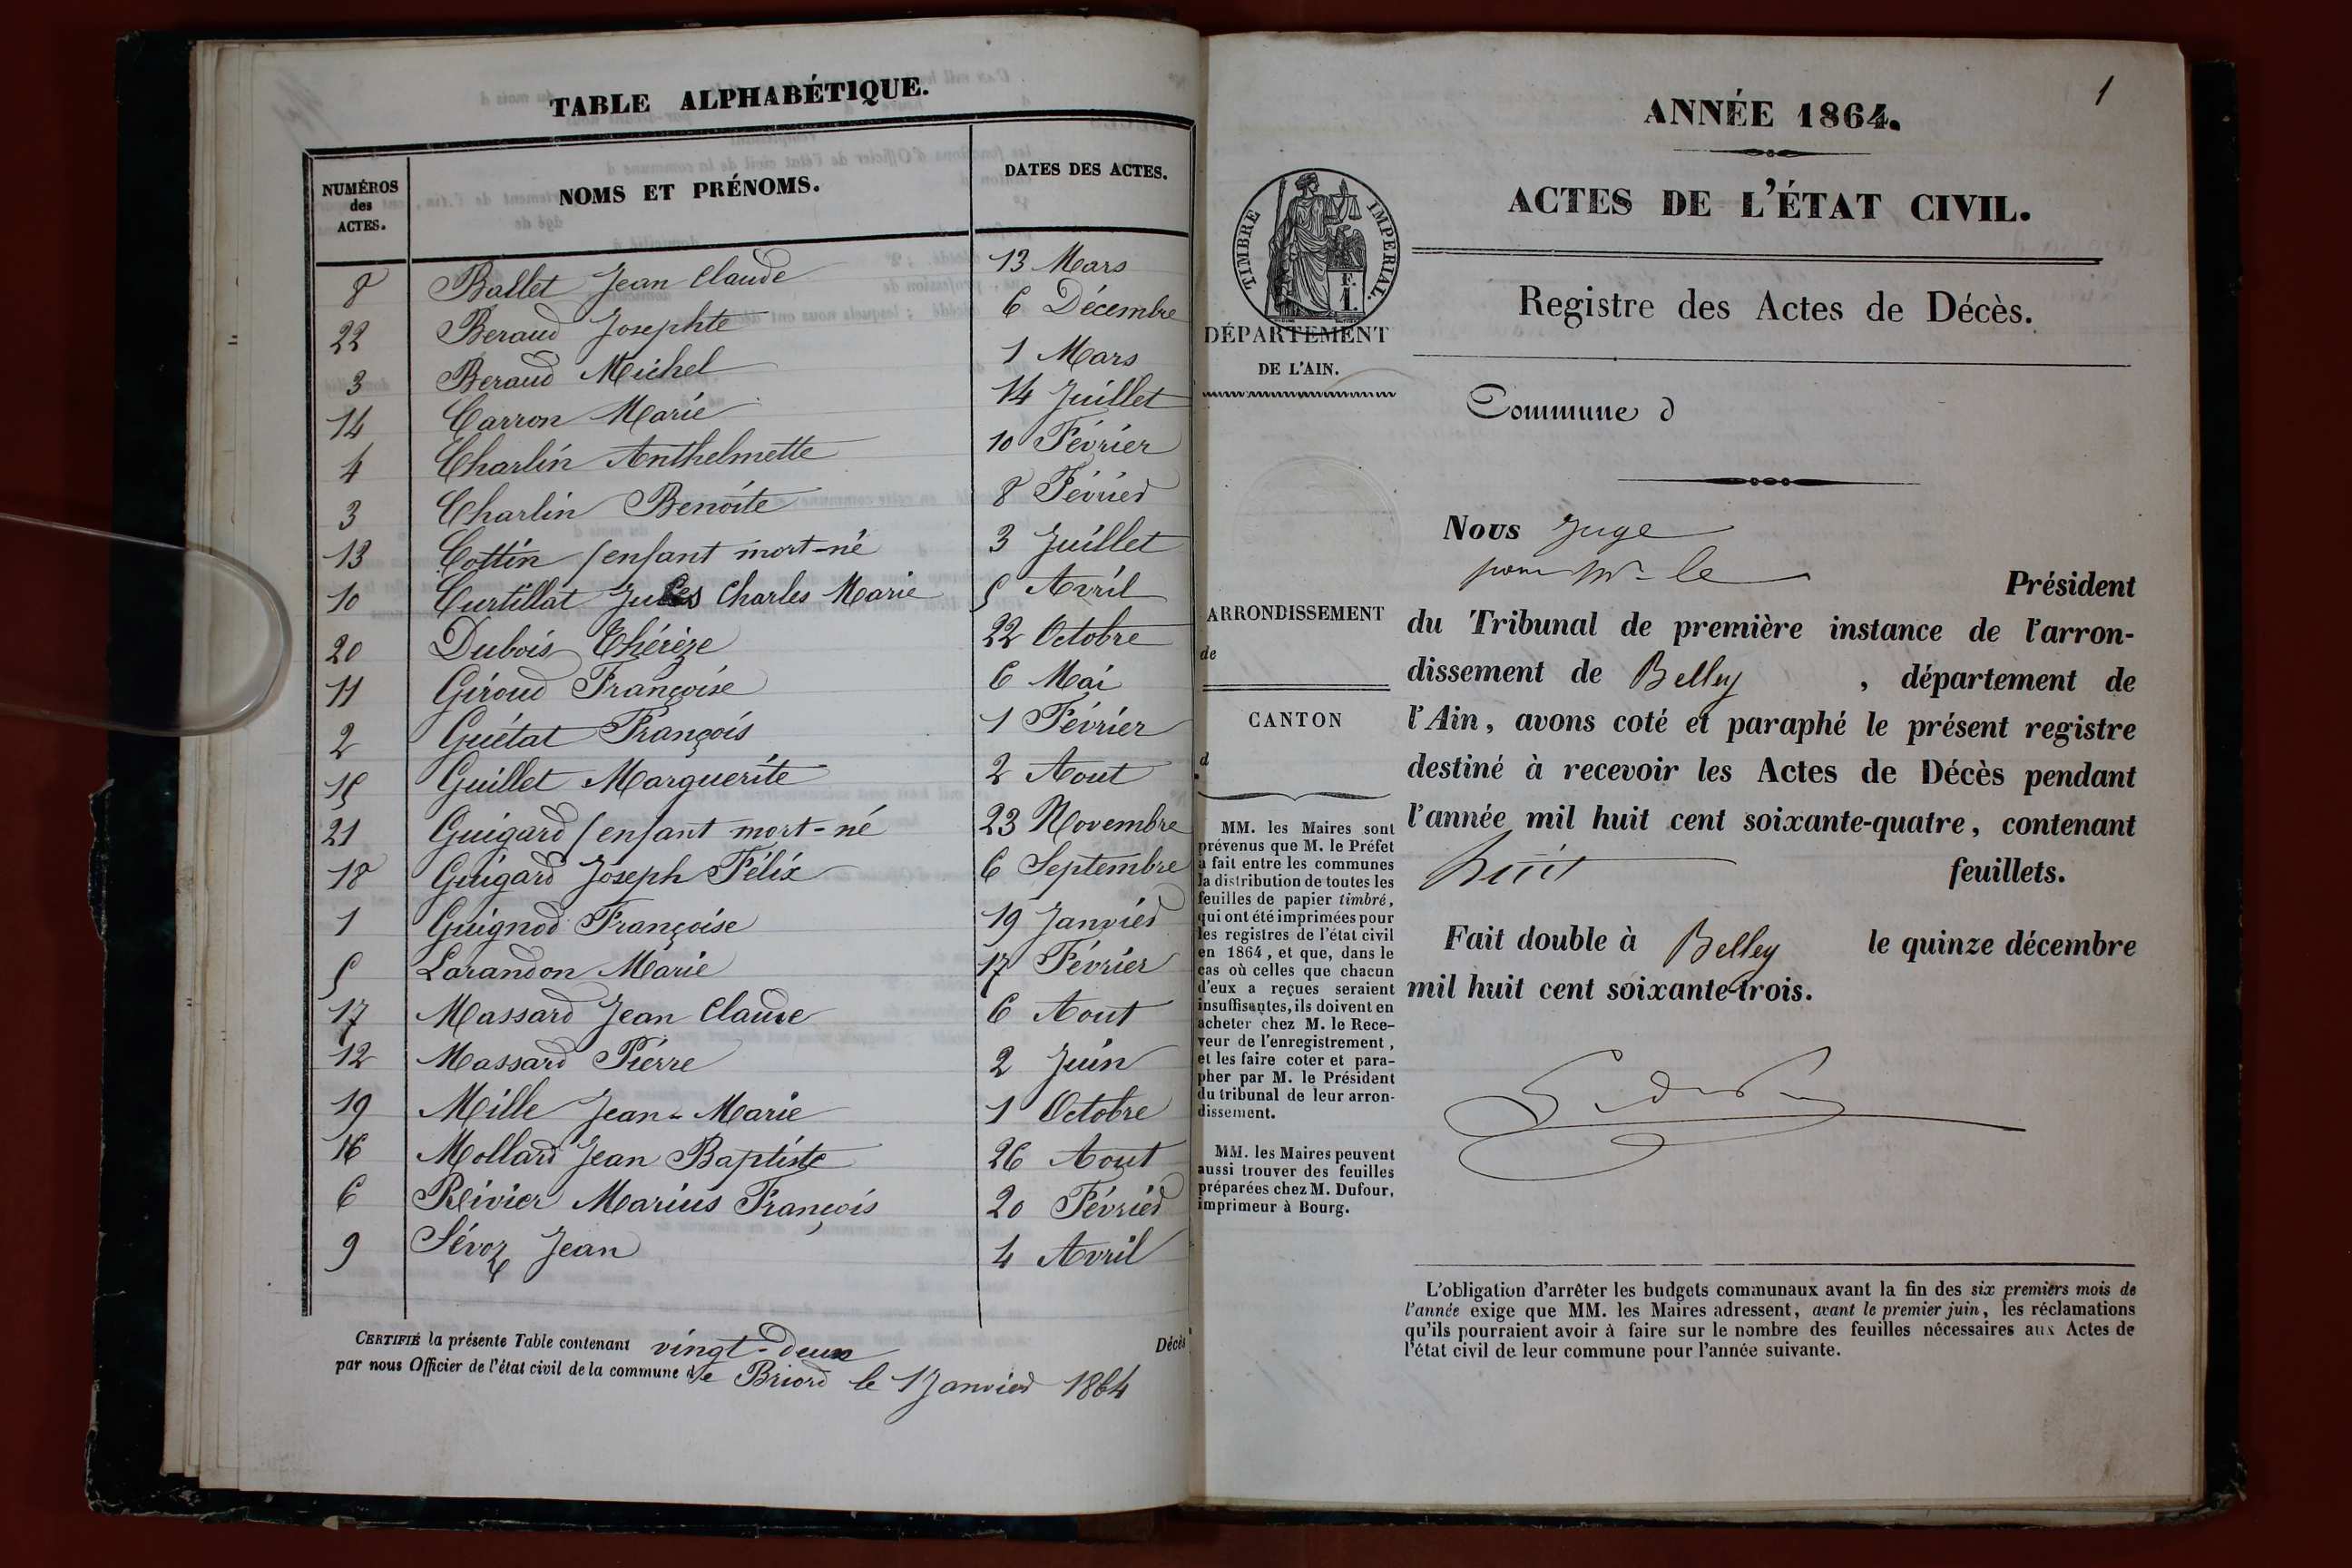 TABLE ALPHABÉTIQUE.
NUMÉROS des ACTES. NOMS ET PRÉNOMS. DATES DES ACTES.
8 Ballet Jean Claude 13 Mars
22 Beraud Josephte 6 Décembre
3 Beraud Michel 1 Mars
14 Carron Marie 14 Juillet
4 Charlin Anthelmette 10 Février
3 Charlin Benoite 8 Février
13 Cottin (enfant mort-né 3 Juillet
10 Curtillat Jules Charles Marie 5 Avril
20 Dubois Thérèze 22 Octobre
11 Giroud Françoise 6 Mai
2 Guétat François 1 Février
15 Guillet Marguerite 2 Aout
21 Guigard (enfant mort-né 23 Novembre
18 Guigard Joseph Félix 6 Septembre
1 Guignod Françoise 19 Janvier
5 Larandon Marie 17 Février
17 Massard Jean Claude 6 Aout
12 Massard Pierre 2 Juin
19 Mille Jean-Marie 1 Octobre
16 Mollard Jean Baptiste 26 Aout
6 Rivier Marius François 20 Février
9 Sévoz Jean 4 Avril
CERTIFIÉ la présente Table contenant vingt-deux Décès
par nous Officier de l'état civil de la commune de Briord le 1 Janvier 1864
1
ANNÉE 1864.
ACTES DE L'ÉTAT CIVIL.
Registre des Actes de Décès.
TIMBRE IMPERIAL.
F.
1.
DÉPARTEMENT
DE L'AIN.
Commune d
ARRONDISSEMENT
de
CANTON
d
MM. les Maires sont
prévenus que M. le Préfet
a fait entre les communes
la distribution de toutes les
feuilles de papier timbré,
qui ont été imprimées pour
les registres de l'état civil
en 1864, et que, dans le
cas où celles que chacun
d'eux a reçues seraient
insuffisantes, ils doivent en
acheter chez M. le Rece-
veur de l'enregistrement,
et les faire coter et para-
pher par M. le Président
du tribunal de leur arron-
dissement.
MM. les Maires peuvent
aussi trouver des feuilles
préparées chez M. Dufour,
imprimeur à Bourg.
Nous Juge
pour Mr le Président
du Tribunal de première instance de l'arron-
dissement de Belley, département de
l'Ain, avons coté et paraphé le présent registre
destiné à recevoir les Actes de Décès pendant
l'année mil huit cent soixante-quatre, contenant
huit feuillets.
Fait double à Belley le quinze décembre
mil huit cent soixante-trois.
L'obligation d'arrêter les budgets communaux avant la fin des six premiers mois de
l'année exige que MM. les Maires adressent, avant le premier juin, les réclamations
qu'ils pourraient avoir à faire sur le nombre des feuilles nécessaires aux Actes de
l'état civil de leur commune pour l'année suivante.